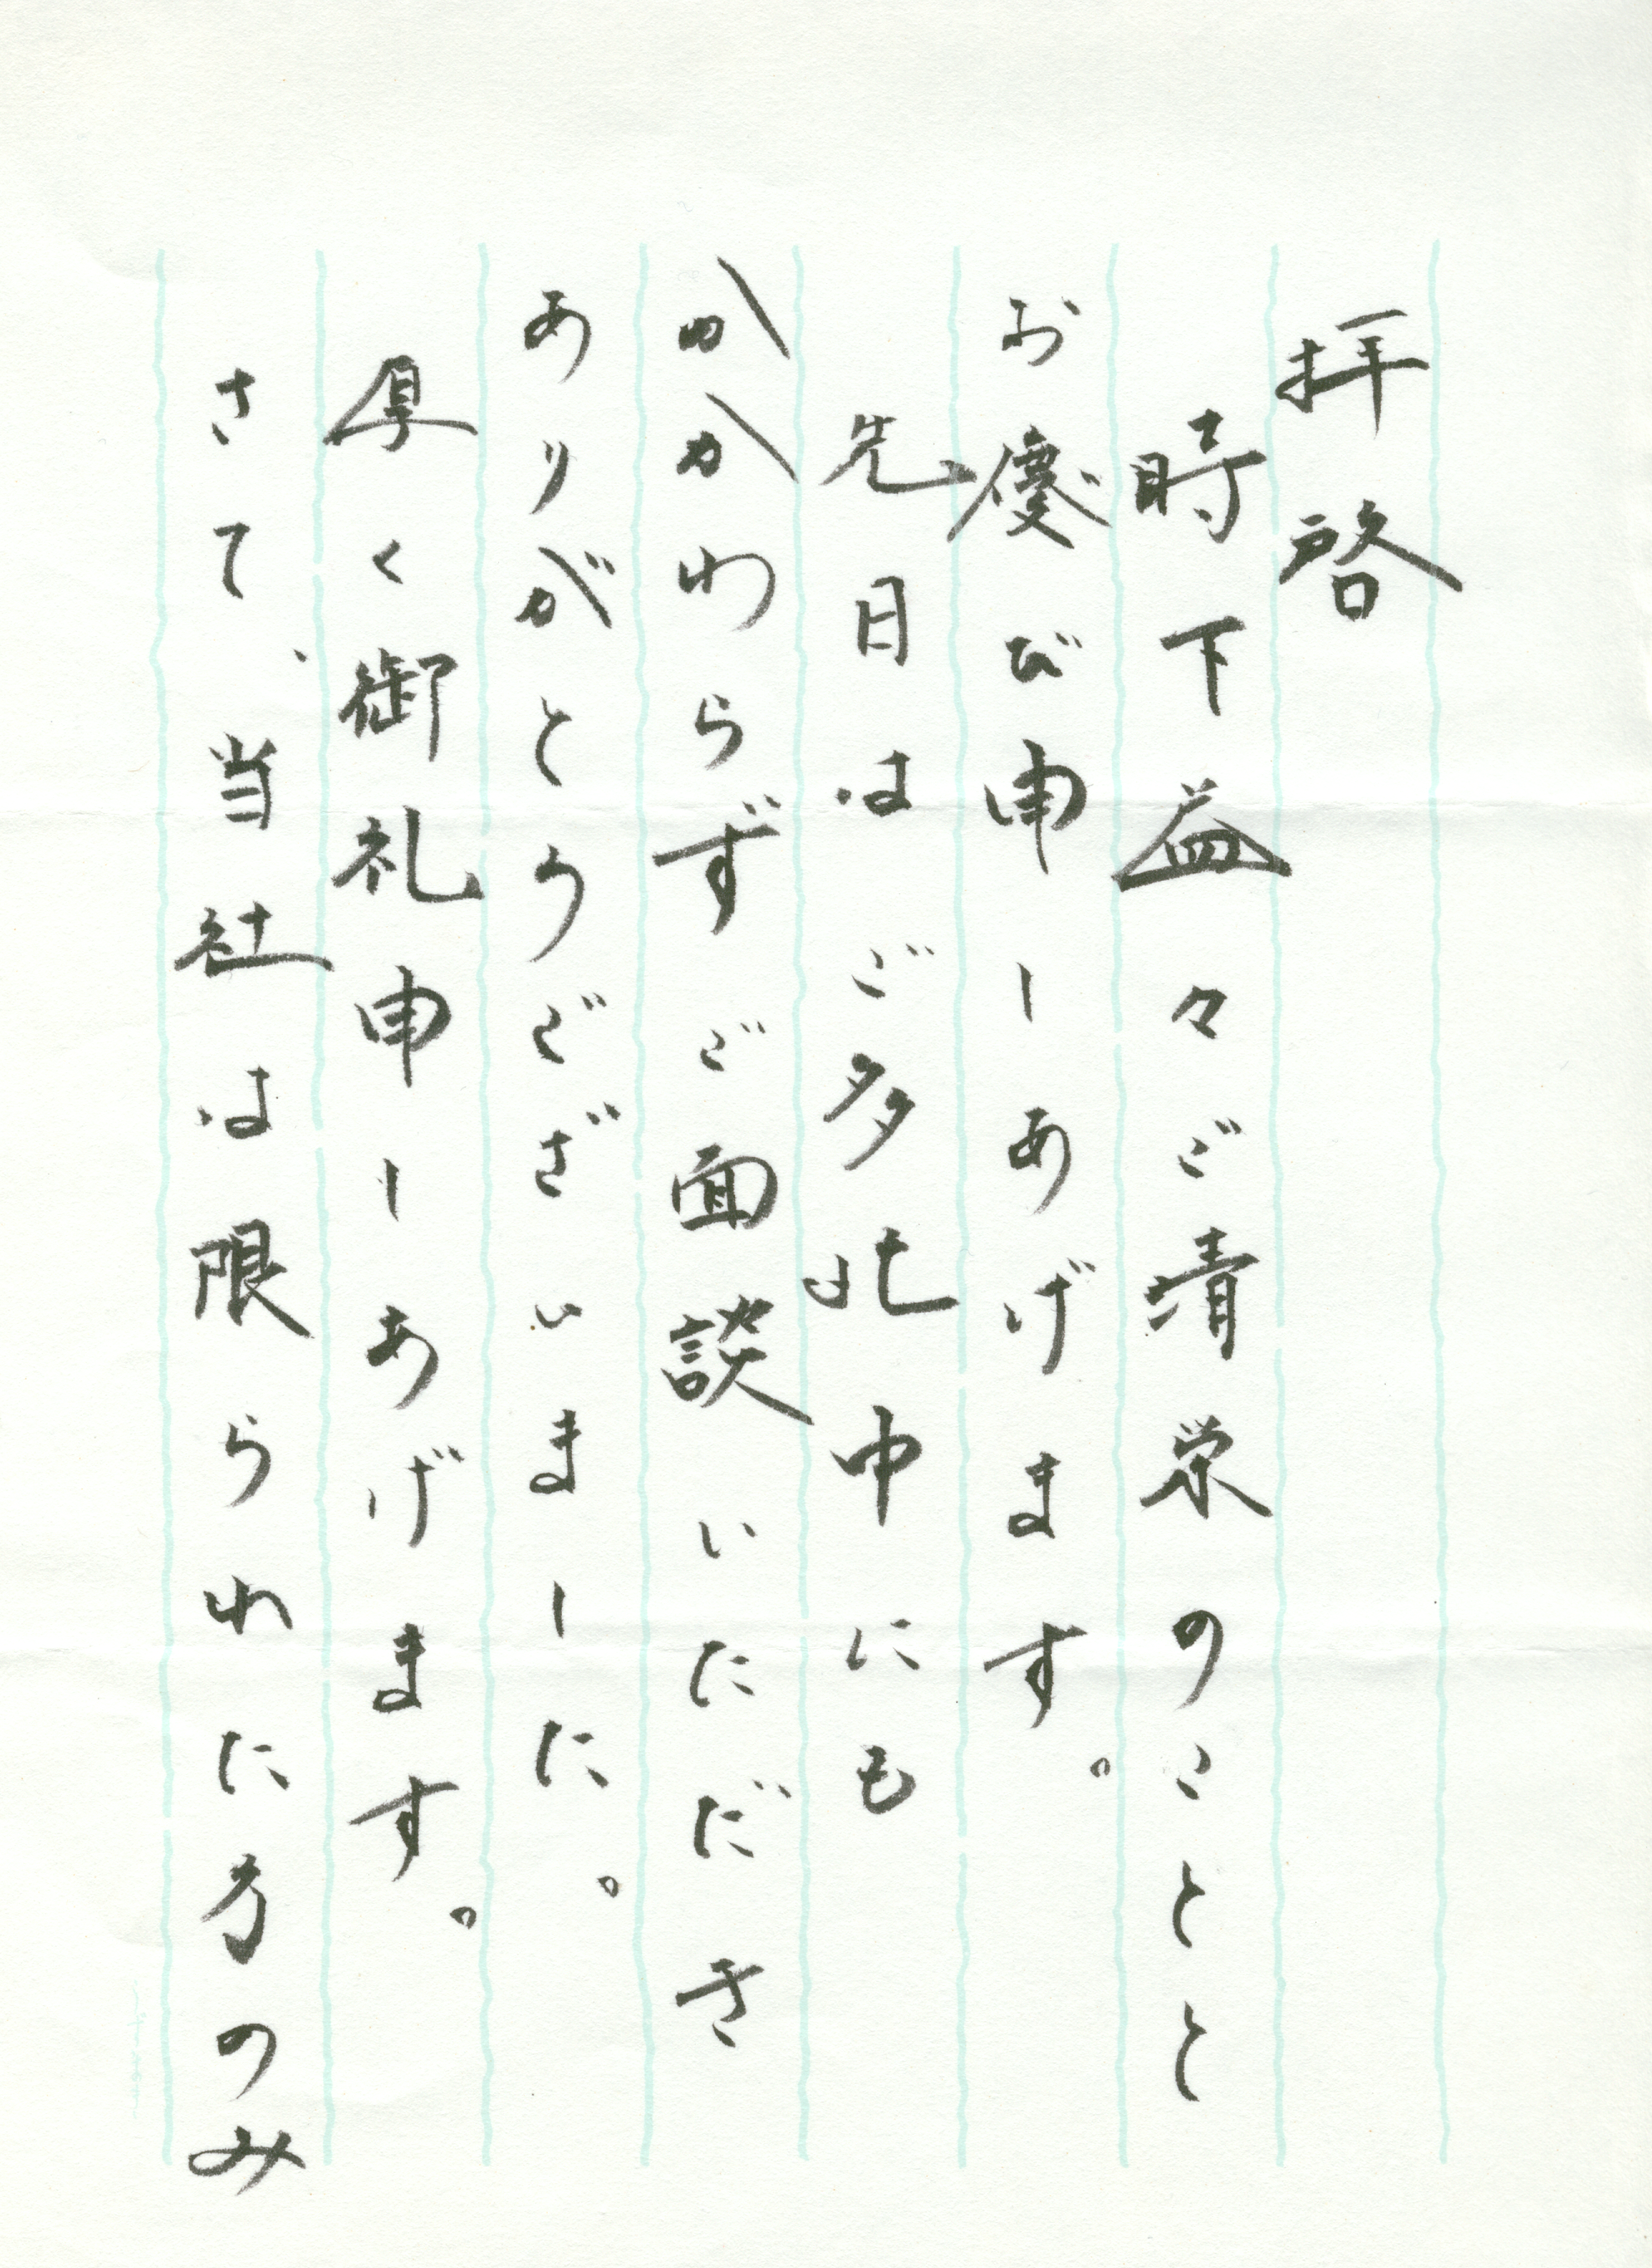 拝啓
時下益々ご清栄のことと
お慶び申しあげます。
先日はご多忙中にも
かかわらずご面談いただき
ありがとうございました。
厚く御礼申しあげます。
さて、当社は限られた方のみ